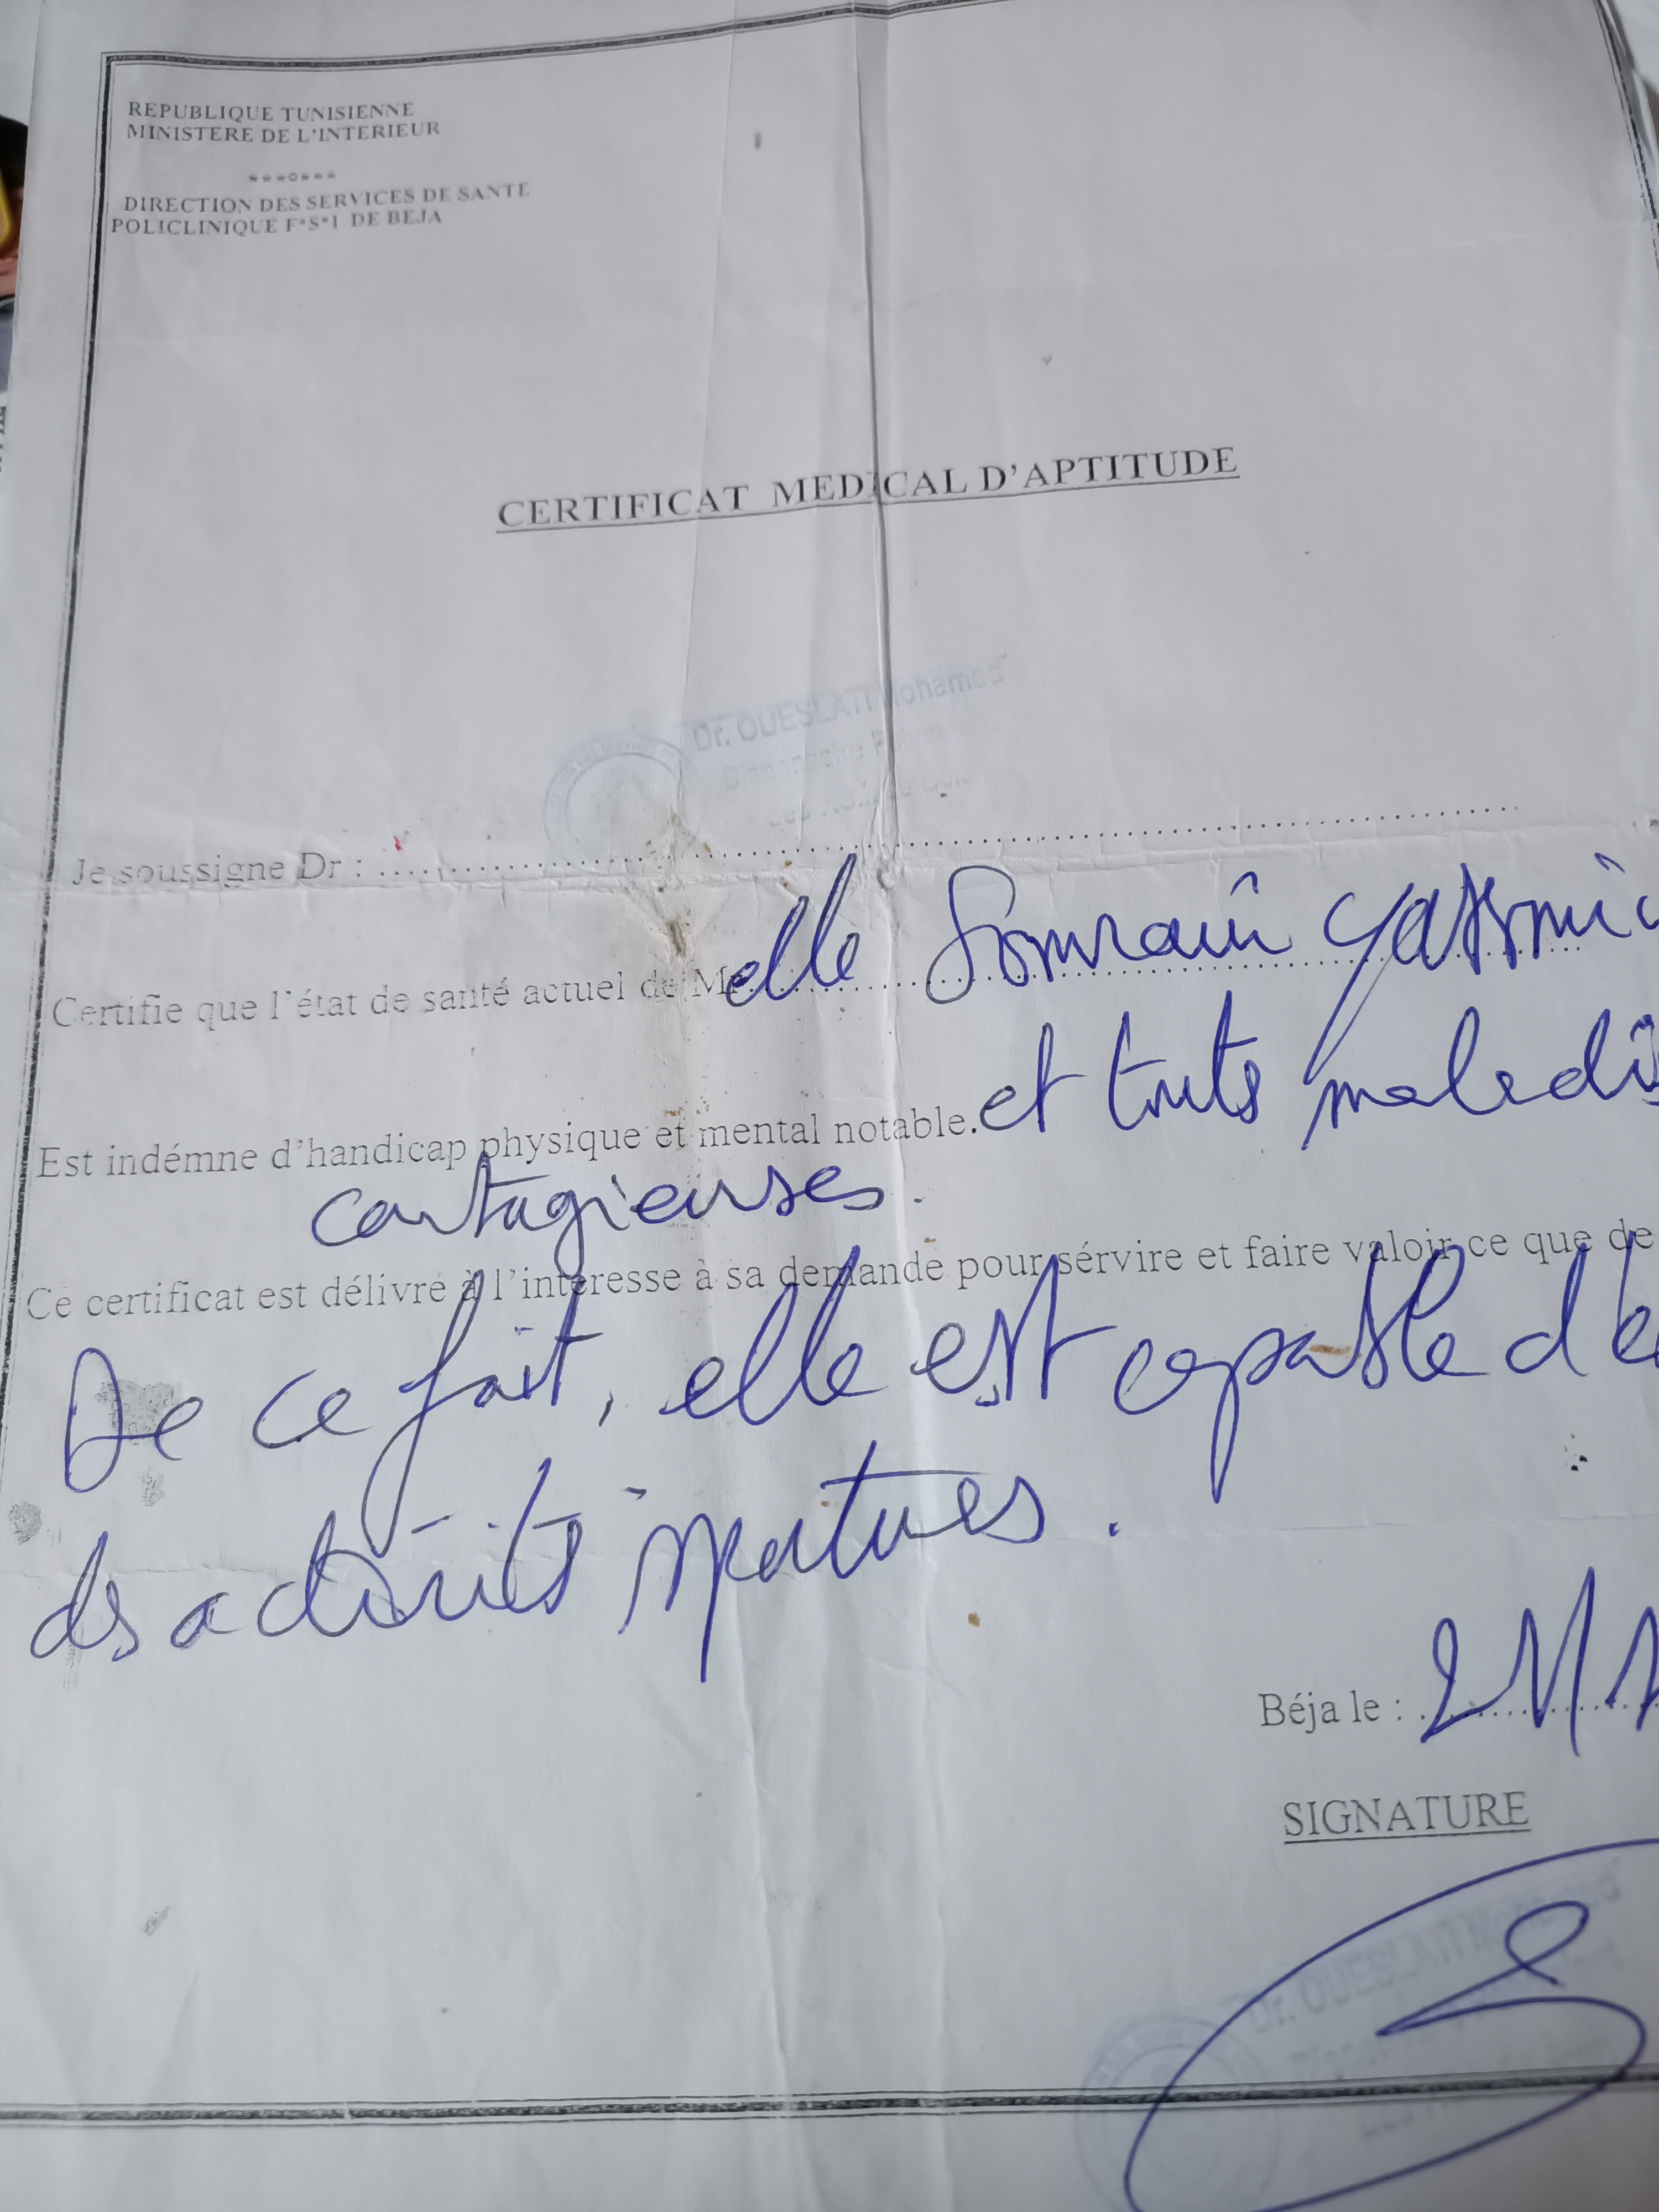 REPUBLIQUE TUNISIENNE
MINISTERE DE L'INTERIEUR
***o***
DIRECTION DES SERVICES DE SANTE
POLICLINIQUE F*S*I DE BEJA
CERTIFICAT MEDICAL D'APTITUDE
Dr. OUESLATI Mohamed
Je soussigne Dr :
Certifie que l'état de santé actuel de Melle
Est indémne d'handicap physique et mental notable. et touts
contagieuses.
Ce certificat est délivré à l'interesse à sa demande pour sérvire et faire valoir ce que de
De ce fait, elle est capable
des activités sportives.
Béja le :
SIGNATURE
Dr. OUESLATI